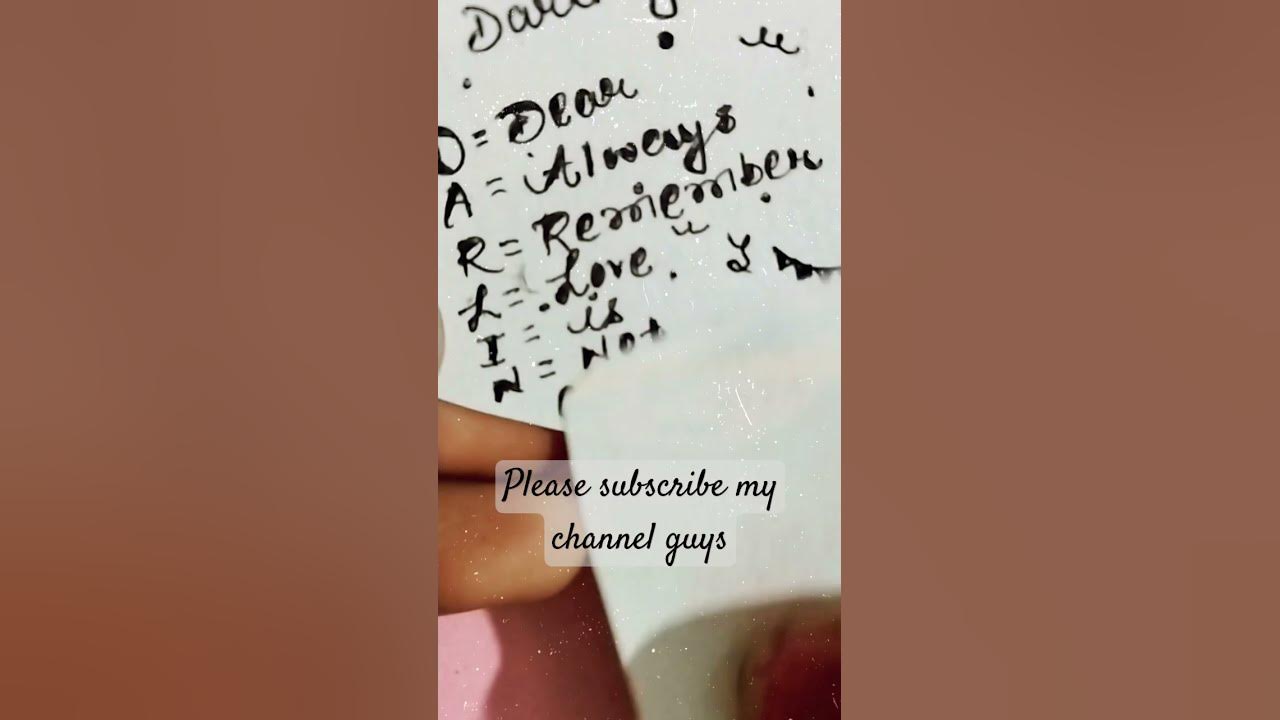 D = Dear
A = Always
R = Remember
L = Love
I = is
N = Not
Please subscribe my
channel guys